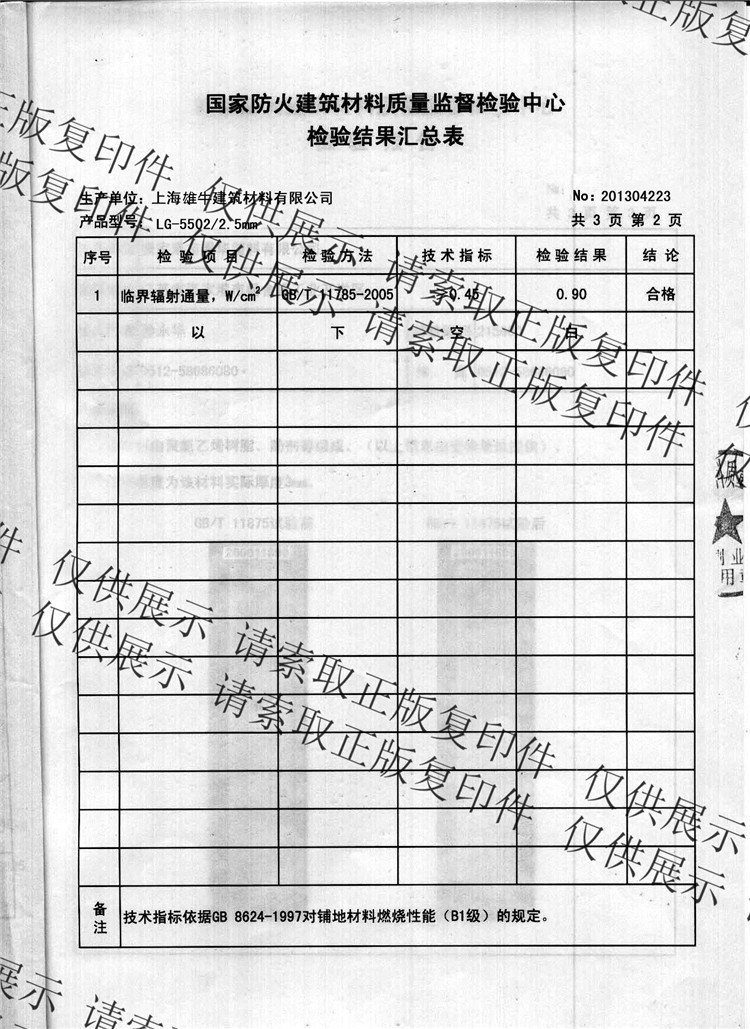 国家防火建筑材料质量监督检验中心
检验结果汇总表
生产单位：上海雄牛建筑材料有限公司 No：201304223
产品型号：LG-5502/2.5mm 共 3 页 第 2 页
序号 检验项目 检验方法 技术指标 检验结果 结论
1 临界辐射通量，W/cm² GB/T 11785-2005 0.45 0.90 合格
以 下 空 白
GB/T 11875试验前
备注 技术指标依据GB 8624-1997对铺地材料燃烧性能（B1级）的规定。
正版复
正版复印件 仅供展示 请索取正版复印件 仅
版复印件 仅供展示 请索取正版复印件 仅
件 仅供展示 请索取正版复印件 仅供展示
仅供展示 请索取正版复印件 仅供展示
展示 请索
业
用